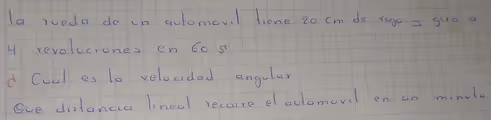 la rueda de un automovil tiene 20 cm de y gira a
4 revoluciones en 60 s
d Cual es la velocidad angular
Que distancia lineal recorre el automovil en un minuto